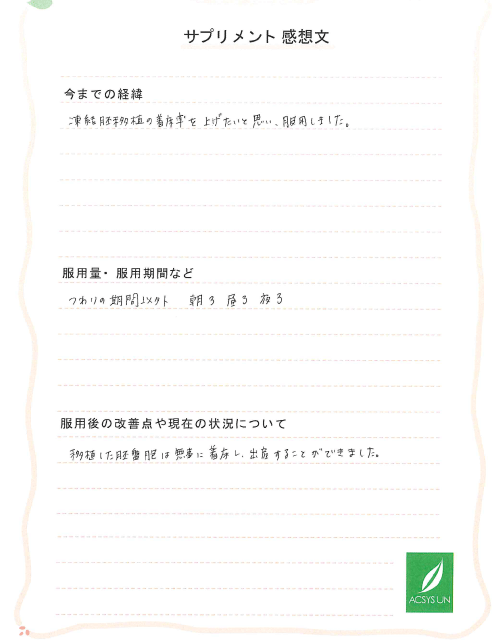 サプリメント 感想文
今までの経緯
凍結胚移植の着床率を上げたいと思い、服用しました。
服用量・服用期間など
つわりの期間以外 朝3 昼3 夜3
服用後の改善点や現在の状況について
移植した胚盤胞は無事に着床し、出産することができました。
ACSYS UN